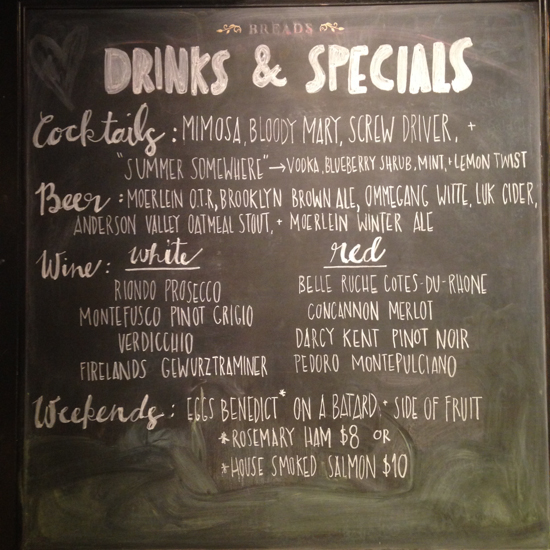 BREADS
DRINKS & SPECIALS
Cocktails: MIMOSA, BLOODY MARY, SCREW DRIVER, +
"SUMMER SOMEWHERE"→VODKA, BLUEBERRY SHRUB, MINT, + LEMON TWIST
Beer: MOERLEIN O.T.R, BROOKLYN BROWN ALE, OMMEGANG WITTE, LUK CIDER,
ANDERSON VALLEY OATMEAL STOUT, + MOERLEIN WINTER ALE
Wine: white red
RIONDO PROSECCO BELLE RUCHE COTES-DU-RHONE
MONTEFUSCO PINOT GRIGIO CONCANNON MERLOT
VERDICCHIO DARCY KENT PINOT NOIR
FIRELANDS GEWURZTRAMINER PEDORO MONTEPULCIANO
Weekends: EGGS BENEDICT* ON A BATARD, + SIDE OF FRUIT
*ROSEMARY HAM $8 OR
*HOUSE SMOKED SALMON $10